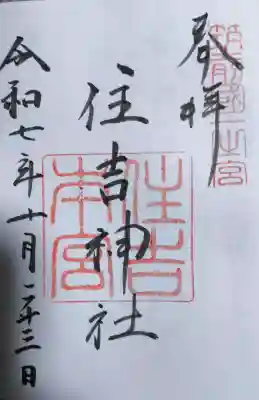 筑前國一之宮
奉拝
住吉神社
住吉本宮
令和七年十月二十三日